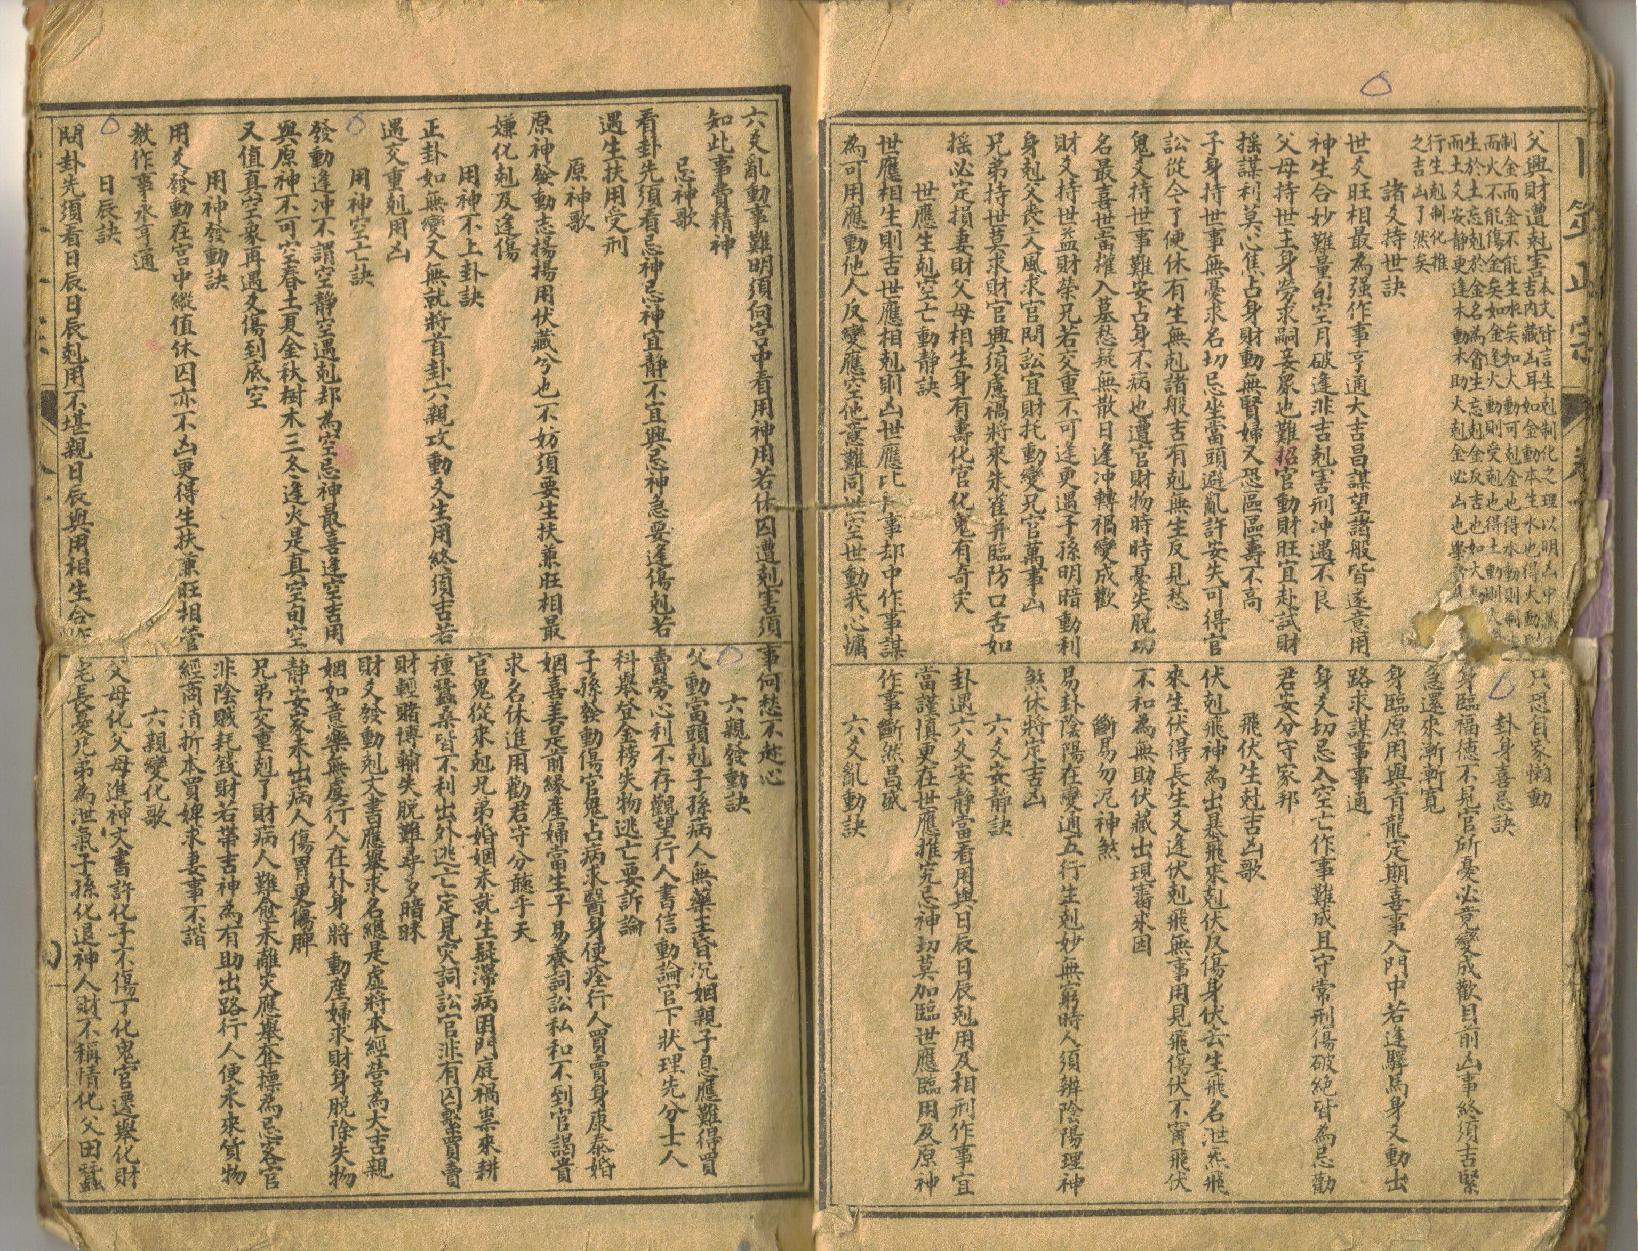 卜筮正宗
父興財遭剋害吉內藏凶耳如金動本生水也得火動則
本文皆言生剋制化之理以明凶中
制金而金不能生水矣如火動可剋金也得水動則制
而火不能傷金矣如金逢火動則受剋也得土動則
生於土忘剋於金名為貪生忘剋金反吉也如火
而土爻安靜更逢木動木助火剋金必凶也舉
行生剋制化推
之吉凶了然矣
諸爻持世訣
世爻旺相最為强作事亨通大吉昌謀望諸般皆遂意用
神生合妙難量旬空月破逢非吉剋害刑冲遇不良
父母持世主身勞求嗣妾衆也難招官動財旺宜赴試財
搖謀利莫心焦占身財動無賢婦又恐區區壽不高
子身持世事無憂求名切忌坐當頭避亂許安失可得官
訟從今了便休有生無剋諸般吉有剋無生反見愁
鬼爻持世事難安占身不病也遭官財物時時憂失脫功
名最喜世當權入墓愁疑無散日逢冲轉禍變成歡
財爻持世益財榮兄若交重不可逢更遇子孫明暗動利
身剋父喪文風求官問訟宜財托動變兄官萬事凶
兄弟持世莫求財官興須慮禍將來朱雀并臨防口舌如
搖必定損妻財父母相生身有壽化官化鬼有奇災
世應生剋空亡動靜訣
世應相生則吉世應相剋則凶世應比和事却中作事謀
為可用應動他人反變應空他意難同世空世動我心慵
只恐自家懶動
卦身喜忌訣
身臨福德不見官所憂必竟變成歡目前凶事終須吉緊
急還來漸漸寬
身臨原用與青龍定期喜事入門中若逢驛馬身爻動出
路求謀事事通
身爻切忌入空亡作事難成且守常刑傷破絕皆為忌勸
君安分守家邦
飛伏生尅吉凶歌
伏剋飛神為出暴飛來剋伏反傷身伏去生飛名泄炁飛
來生伏得長生爻逢伏剋飛無事用見飛傷伏不寧飛伏
不和為無助伏藏出現審來因
斷易勿泥神煞
易卦陰陽在變通五行生剋妙無窮時人須辨陰陽理神
煞休將定吉凶
六爻安靜訣
卦遇六爻安靜當看用與日辰日辰剋用及相刑作事宜
當謹慎更在世應推究忌神切莫加臨世應臨用及原神
作事斷然昌盛
六爻亂動訣
六爻亂動事難明須向宮中看用神用若休囚遭剋害須
知此事費精神
忌神歌
看卦先須看忌神忌神宜靜不宜興忌神急要逢傷剋若
遇生扶用受刑
原神歌
原神發動志揚揚用伏藏兮也不妨須要生扶兼旺相最
嫌化剋及逢傷
用神不上卦訣
正卦如無變又無就將首卦六親攻動爻生用終須吉若
遇交重剋用凶
用神空亡訣
發動逢冲不謂空靜空遇剋却為空忌神最喜逢空吉用
與原神不可空春土夏金秋樹木三冬逢火是真空旬空
又值真空象再遇爻傷到底空
用神發動訣
用爻發動在宮中縱值休囚亦不凶更得生扶兼旺相管
教作事永亨通
日辰訣
問卦先須看日辰日辰剋用不堪親日辰與用相生合作
事何愁不趁心
六親發動訣
父動當頭剋子孫病人無藥主昏沉姻親子息應難得買
賣勞心利不存觀望行人書信動論官下狀理先分士人
科舉登金榜失物逃亡要訴論
子孫發動傷官鬼占病求醫身便痊行人買賣身康泰婚
姻喜美是前緣產婦當生子易養詞訟私和不到官謁貴
求名休進用勸君守分聽乎天
官鬼從來剋兄弟婚姻未就生疑滯病困門庭禍祟來耕
種蠶桑皆不利出外逃亡定見災詞訟官非有囚繫買賣
財輕賭博輸失脫難尋多暗昧
財爻發動剋文書應舉求名總是虛將本經營為大吉親
姻如意樂無虞行人在外身將動產婦求財身脫除失物
靜安家未出病人傷胃更傷脾
兄弟交重剋了財病人難愈未離災應舉奪標為忌客官
非陰賊耗錢財若帶吉神為有助出路行人便未來貨物
經商消折本買婢求妻事不諧
六親變化歌
父母化父母進神文書許化子不傷丁化鬼官遷舉化財
宅長憂兄弟為泄氣子孫化退神人財不稱情化父田蠶